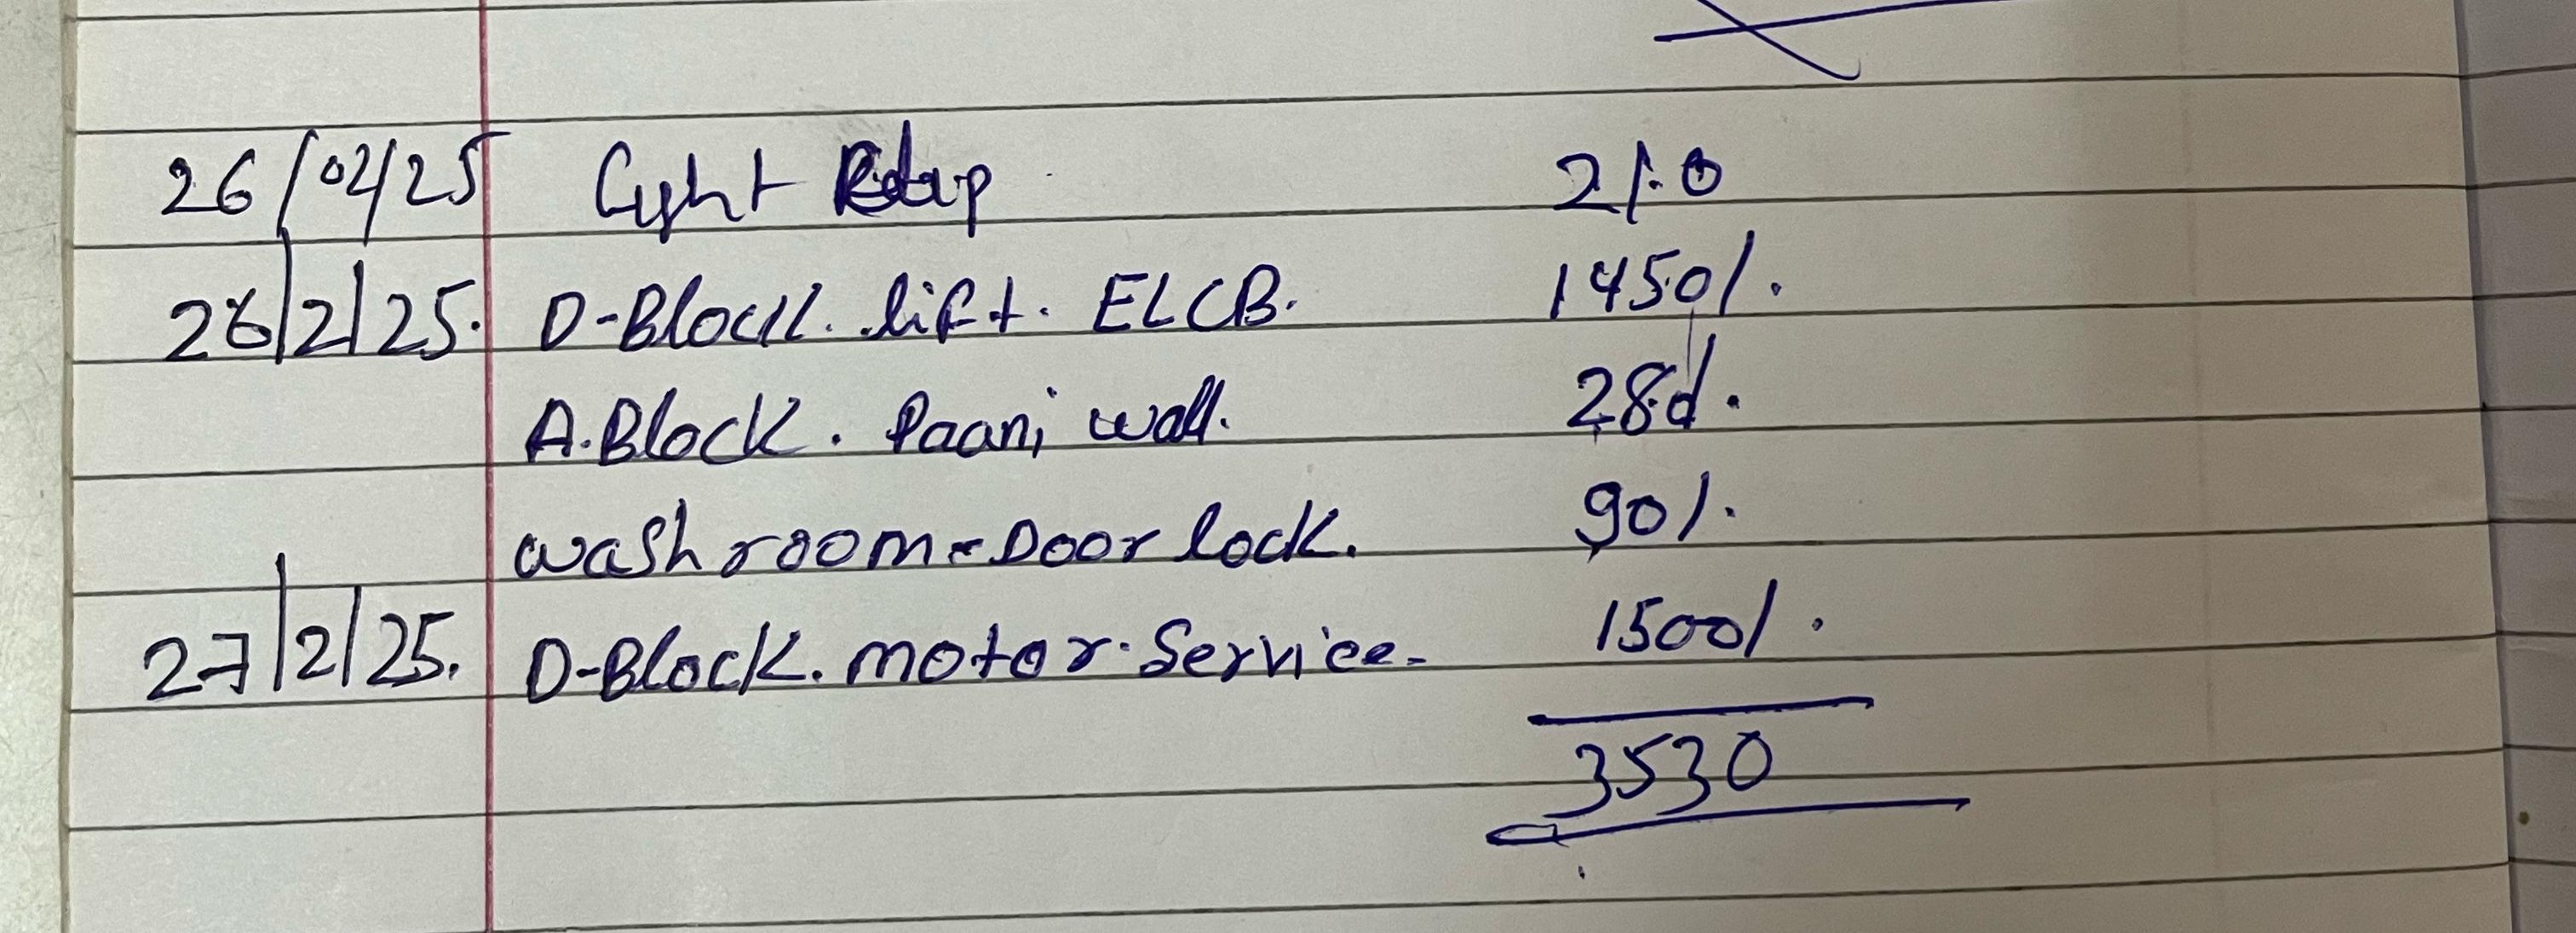 26/02/25 Light 210
26/2/25. D-Block. lift. ELCB. 1450/.
A.Block. Paani wall. 280/.
wash room-Door lock. 90/.
27/2/25. D-Block. motor. Service- 1500/.
3530